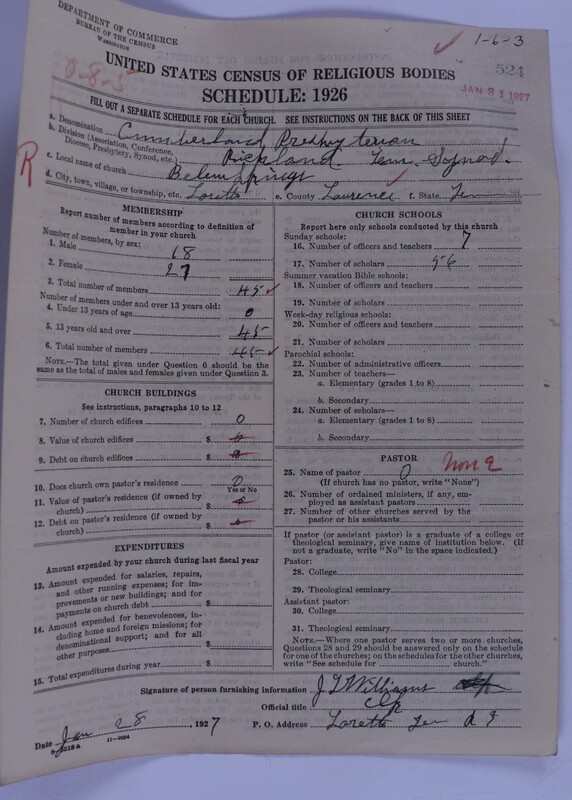 DEPARTMENT OF COMMERCE
BUREAU OF THE CENSUS
WASHINGTON
1-6-3
524
0-8-5
JAN 31 1927
UNITED STATES CENSUS OF RELIGIOUS BODIES
SCHEDULE: 1926
FILL OUT A SEPARATE SCHEDULE FOR EACH CHURCH. SEE INSTRUCTIONS ON THE BACK OF THIS SHEET
a. Denomination Cumberland Presbyterian
b. Division (Association, Conference, Diocese, Presbytery, Synod, etc.) Richland Tenn. Synod.
R
c. Local name of church
d. City, town, village, or township, etc. Loretto e. County Laurence f. State Ten
MEMBERSHIP
Report number of members according to definition of member in your church
Number of members, by sex:
1. Male 18
2. Female 27
3. Total number of members 45
Number of members under and over 13 years old:
4. Under 13 years of age 0
5. 13 years old and over 45
6. Total number of members 45
NOTE.—The total given under Question 6 should be the same as the total of males and females given under Question 3.
CHURCH BUILDINGS
See instructions, paragraphs 10 to 12
7. Number of church edifices 0
8. Value of church edifices $ 0
9. Debt on church edifices $ 0
10. Does church own pastor's residence? 0
Yes or No
11. Value of pastor's residence (if owned by church) $ 0
12. Debt on pastor's residence (if owned by church) $ 0
EXPENDITURES
Amount expended by your church during last fiscal year
13. Amount expended for salaries, repairs, and other running expenses; for improvements or new buildings; and for payments on church debt $
14. Amount expended for benevolences, including home and foreign missions; for denominational support; and for all other purposes $
15. Total expenditures during year $
CHURCH SCHOOLS
Report here only schools conducted by this church
Sunday schools:
16. Number of officers and teachers 7
17. Number of scholars 56
Summer vacation Bible schools:
18. Number of officers and teachers
19. Number of scholars
Week-day religious schools:
20. Number of officers and teachers
21. Number of scholars
Parochial schools:
22. Number of administrative officers
23. Number of teachers—
a. Elementary (grades 1 to 8)
b. Secondary
24. Number of scholars—
a. Elementary (grades 1 to 8)
b. Secondary
PASTOR
25. Name of pastor 0 None
(If church has no pastor, write "None")
26. Number of ordained ministers, if any, employed as assistant pastors
27. Number of other churches served by the pastor or his assistants
If pastor (or assistant pastor) is a graduate of a college or theological seminary, give name of institution below. (If not a graduate, write "No" in the space indicated.)
Pastor:
28. College
29. Theological seminary
Assistant pastor:
30. College
31. Theological seminary
NOTE.—Where one pastor serves two or more churches, Questions 28 and 29 should be answered only on the schedule for one of the churches; on the schedules for the other churches, write "See schedule for church."
Signature of person furnishing information J T Williams
Official title Clk
Date Jan 28, 1927 P. O. Address Loretto Ten
11-9084